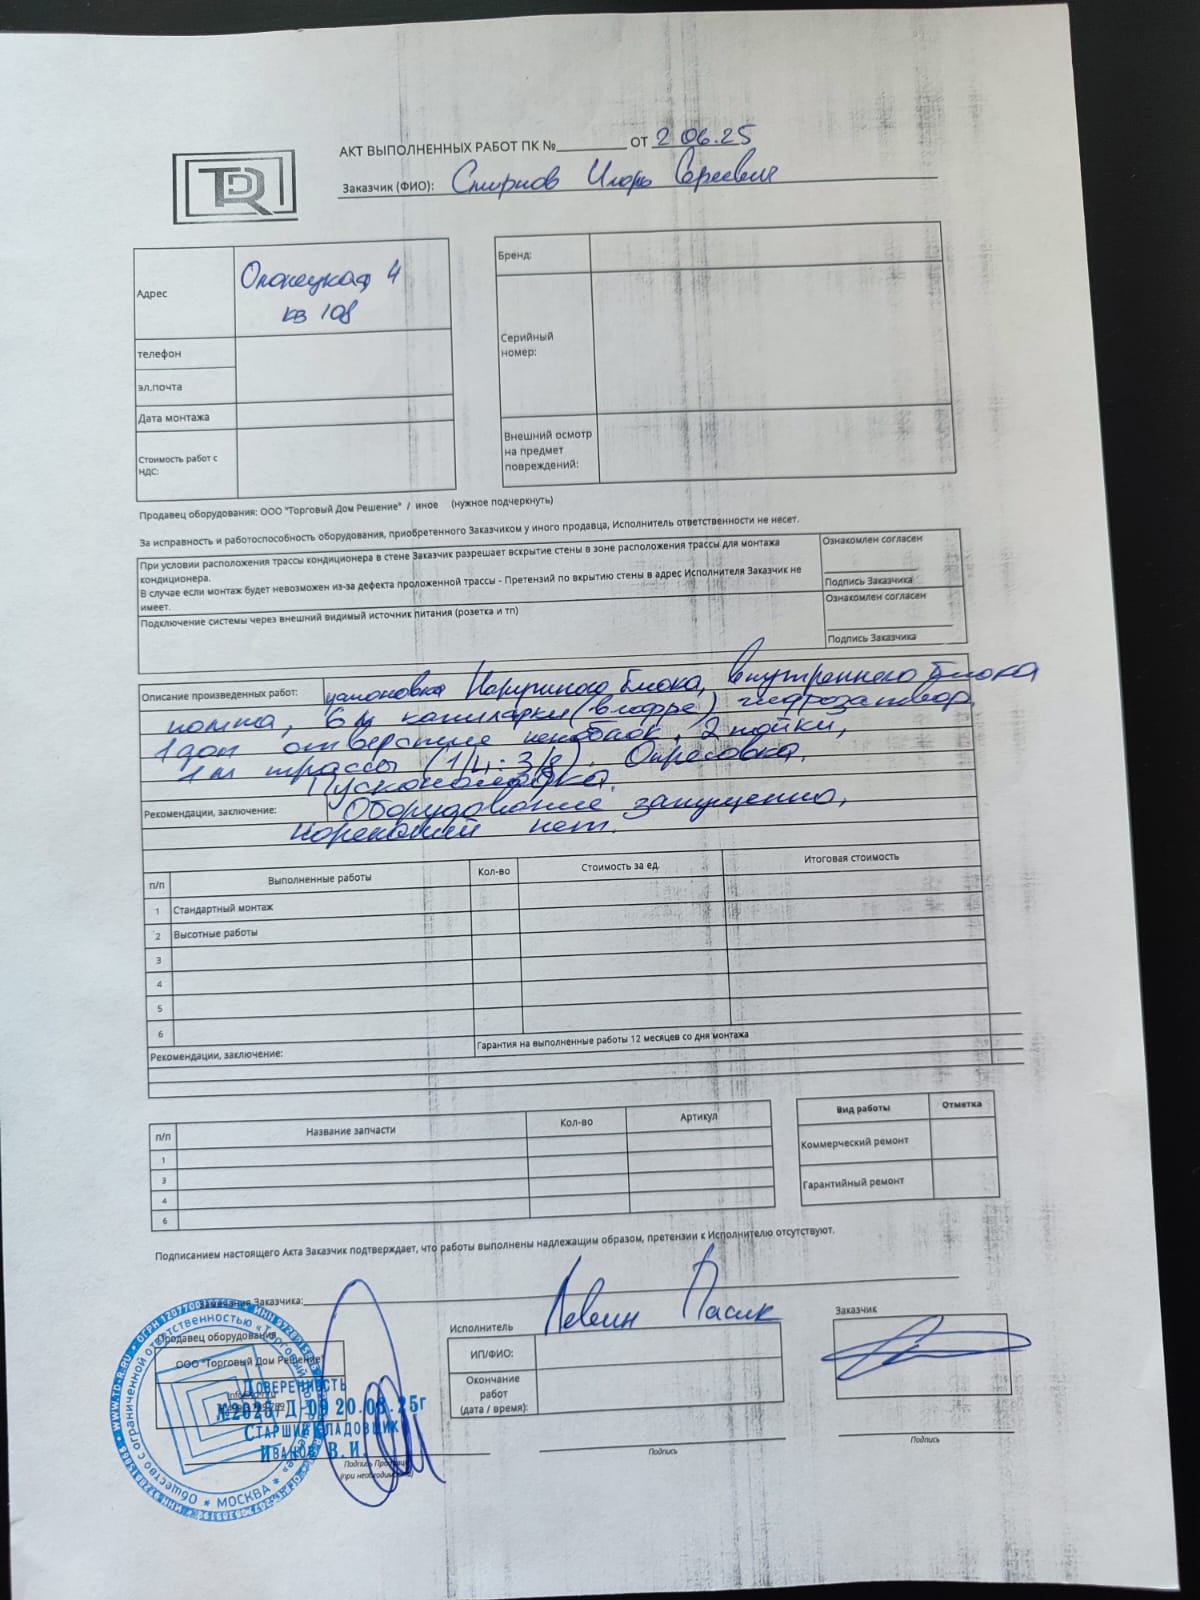 TDR
АКТ ВЫПОЛНЕННЫХ РАБОТ ПК №________ ОТ 2 06.25
Заказчик (ФИО): Смирнов Игорь Сергеевич
Адрес
Олонецкая 4
кв 108
телефон
эл.почта
Дата монтажа
Стоимость работ с НДС:
Бренд:
Серийный
номер:
Внешний осмотр
на предмет
повреждений:
Продавец оборудования: ООО "Торговый Дом Решение" / иное (нужное подчеркнуть)
За исправность и работоспособность оборудования, приобретенного Заказчиком у иного продавца, Исполнитель ответственности не несет.
При условии расположения трассы кондиционера в стене Заказчик разрешает вскрытие стены в зоне расположения трассы для монтажа
кондиционера.
В случае если монтаж будет невозможен из-за дефекта проложенной трассы - Претензий по вкрытию стены в адрес Исполнителя Заказчик не
имеет.
Ознакомлен согласен
Подпись Заказчика
Подключение системы через внешний видимый источник питания (розетка и тп)
Ознакомлен согласен
Подпись Заказчика
Описание произведенных работ: установка Наружного блока, внутреннего блока
помпа, 6м капилярки (в гофре) гидрозатвор,
1 доп отверстие пенобло​к, 2 пайки,
1м трассы (1/4:3/8). Опресовка.
Пусконаладка.
Рекомендации, заключение: Оборудование запущенно,
нореканий нет.
п/п Выполненные работы Кол-во Стоимость за ед. Итоговая стоимость
1 Стандартный монтаж
2 Высотные работы
3
4
5
6
Рекомендации, заключение: Гарантия на выполненные работы 12 месяцев со дня монтажа
п/п Название запчасти Кол-во Артикул
1
3
4
6
Вид работы Отметка
Коммерческий ремонт
Гарантийный ремонт
Подписанием настоящего Акта Заказчик подтверждает, что работы выполнены надлежащим образом, претензии к Исполнителю отсутствуют.
Замечания Заказчика:
Продавец оборудования
ООО "Торговый Дом Решение"
Доверенность
20.0
25г
Старший кладовщик
Иванов В.И.
Подпись Продавца
(при необходимости)
Общество с ограниченной ответственностью «Торговый
* МОСКВА *
WWW.TD-R.RU
Исполнитель Левин Пасик
ИП/ФИО:
Окончание
работ
(дата / время):
Подпись
Заказчик
Подпись